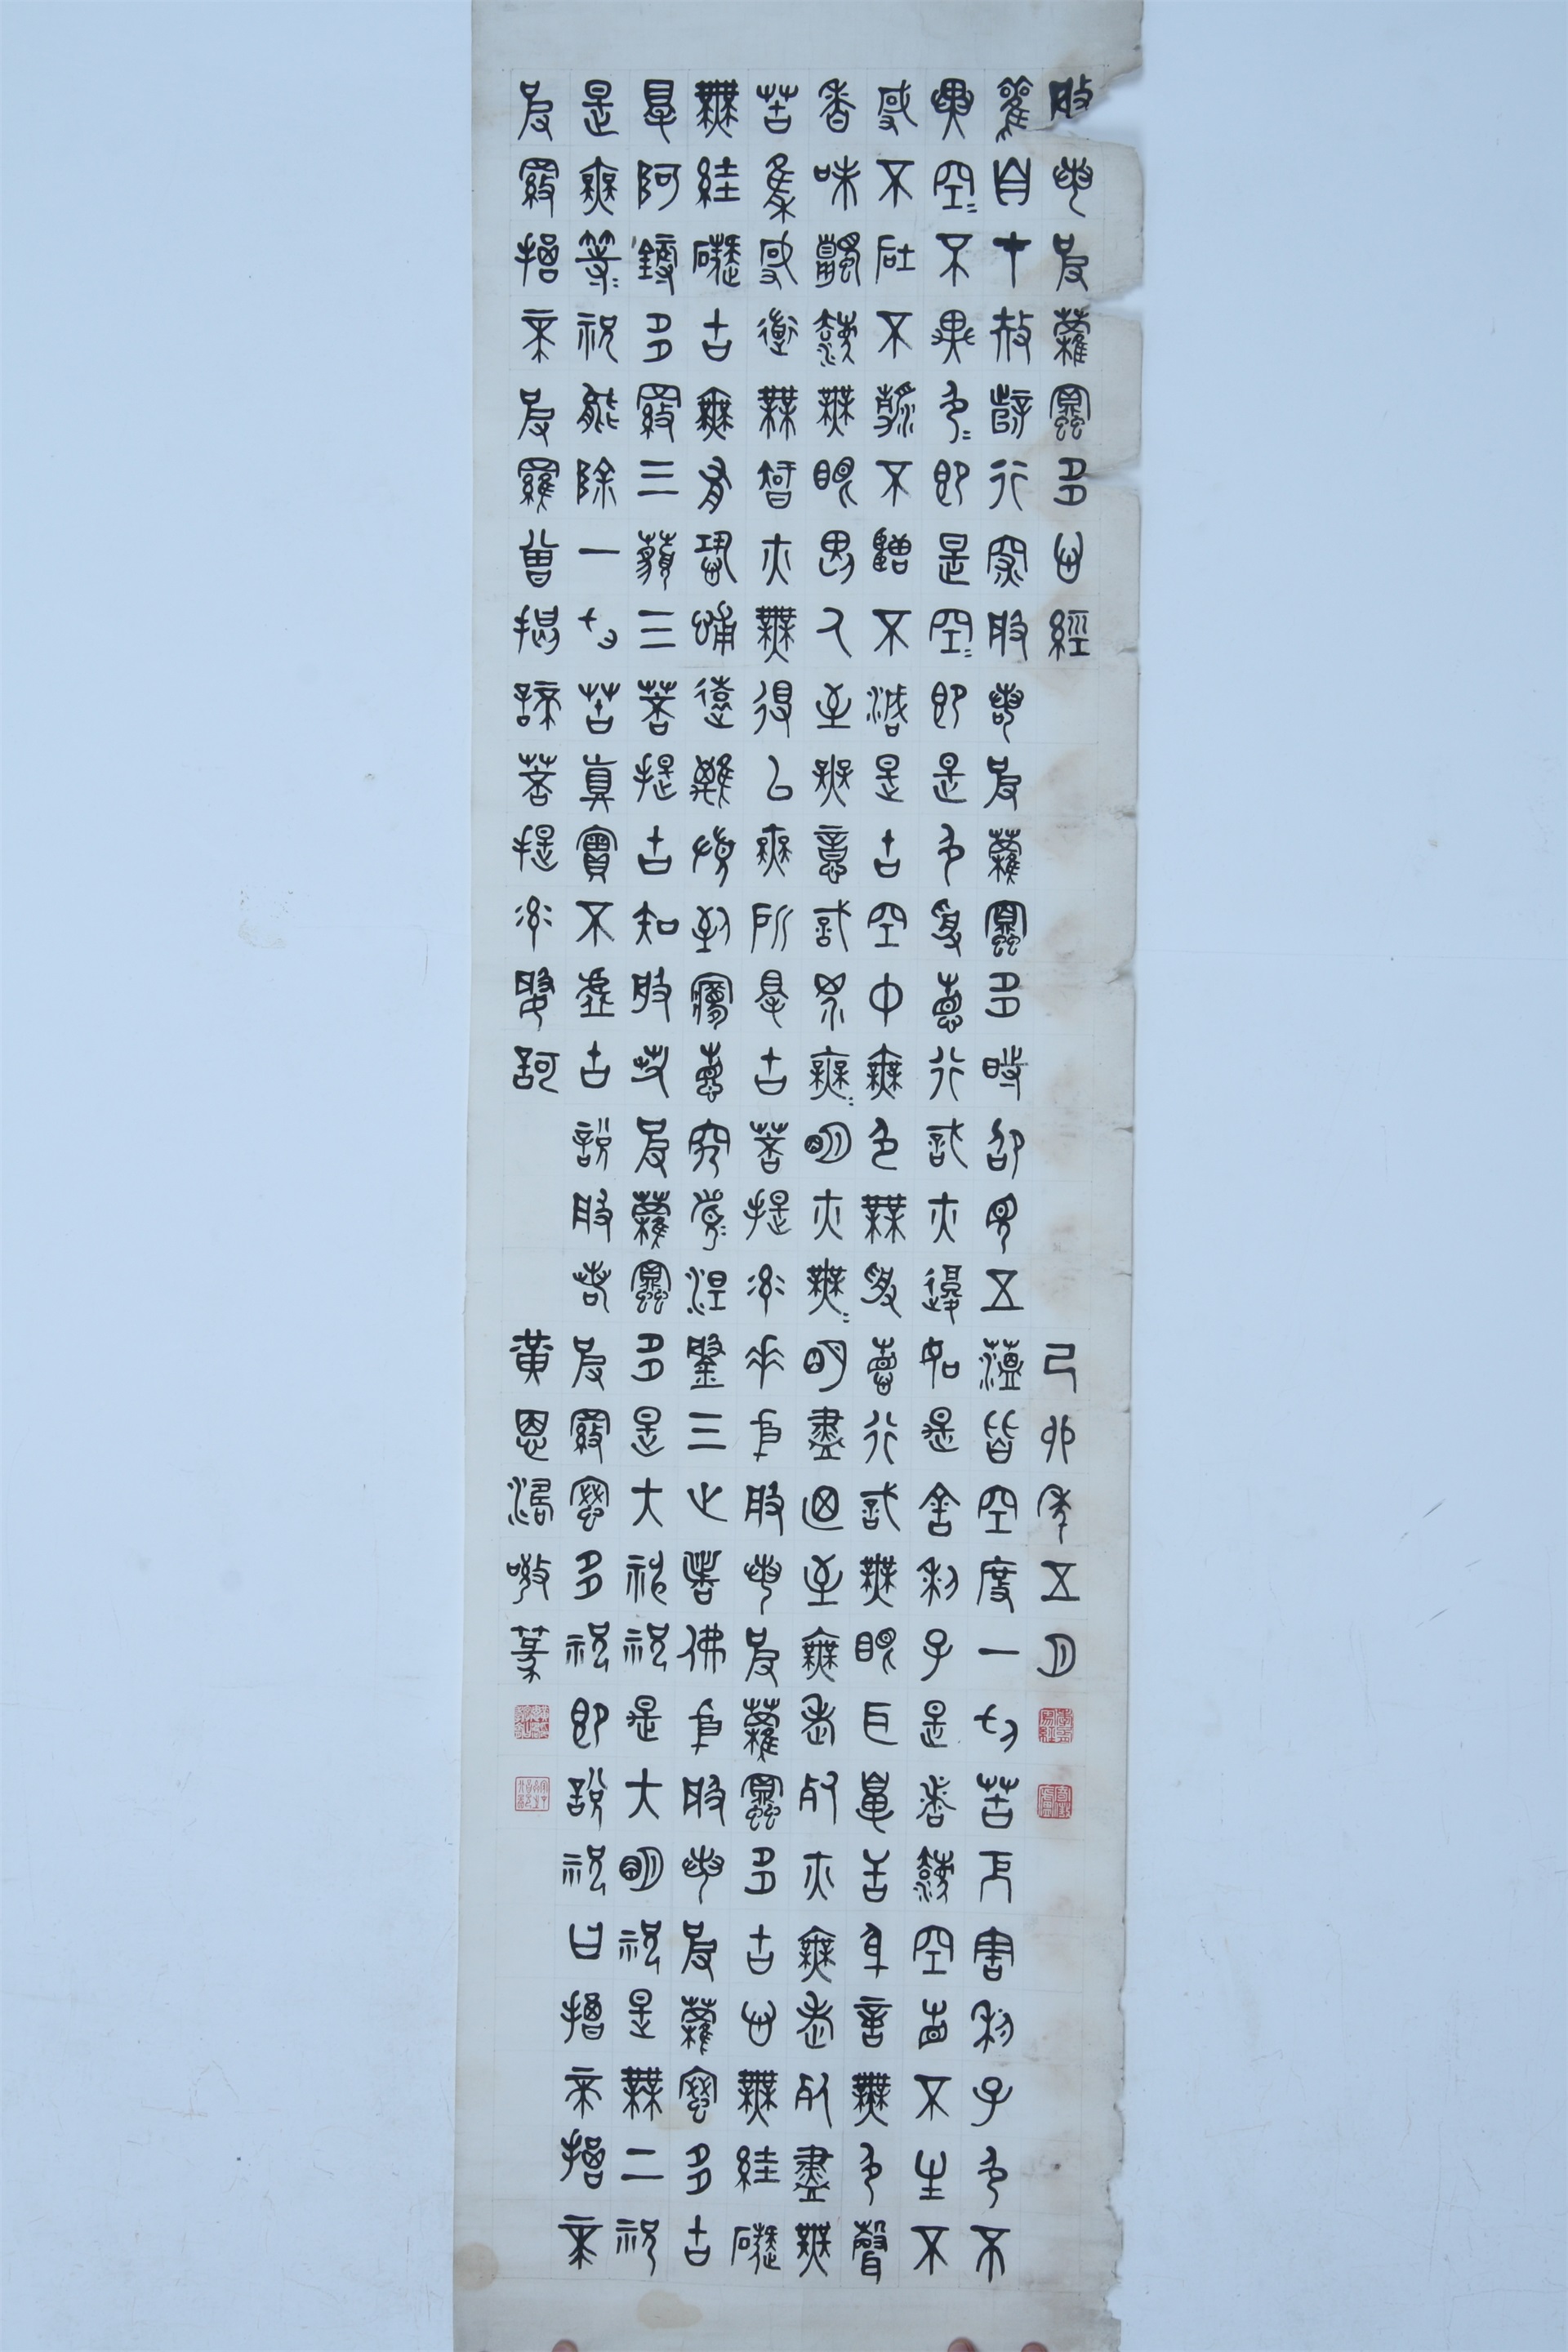 般若波羅蜜多心經
觀自在菩薩行深般若波羅蜜多時照見五蘊皆空度一切苦厄舍利子色不
異空〻不異色〻即是空〻即是色受想行識亦復如是舍利子是諸法空相不生不
滅不垢不淨不增不減是故空中無色無受想行識無眼耳鼻舌身意無色聲
香味觸法無眼界乃至無意識界無〻明亦無〻明盡乃至無老死亦無老死盡無
苦集滅道無智亦無得以無所得故菩提薩埵依般若波羅蜜多故心無罣礙
無罣礙故無有恐怖遠離顛倒夢想究竟涅槃三世諸佛依般若波羅蜜多故
得阿耨多羅三藐三菩提故知般若波羅蜜多是大神咒是大明咒是無上咒
是無等〻咒能除一切苦真實不虛故說般若波羅蜜多咒即說咒曰揭諦揭諦
波羅揭諦波羅僧揭諦菩提薩婆訶
己卯年五月
黃恩敬篆